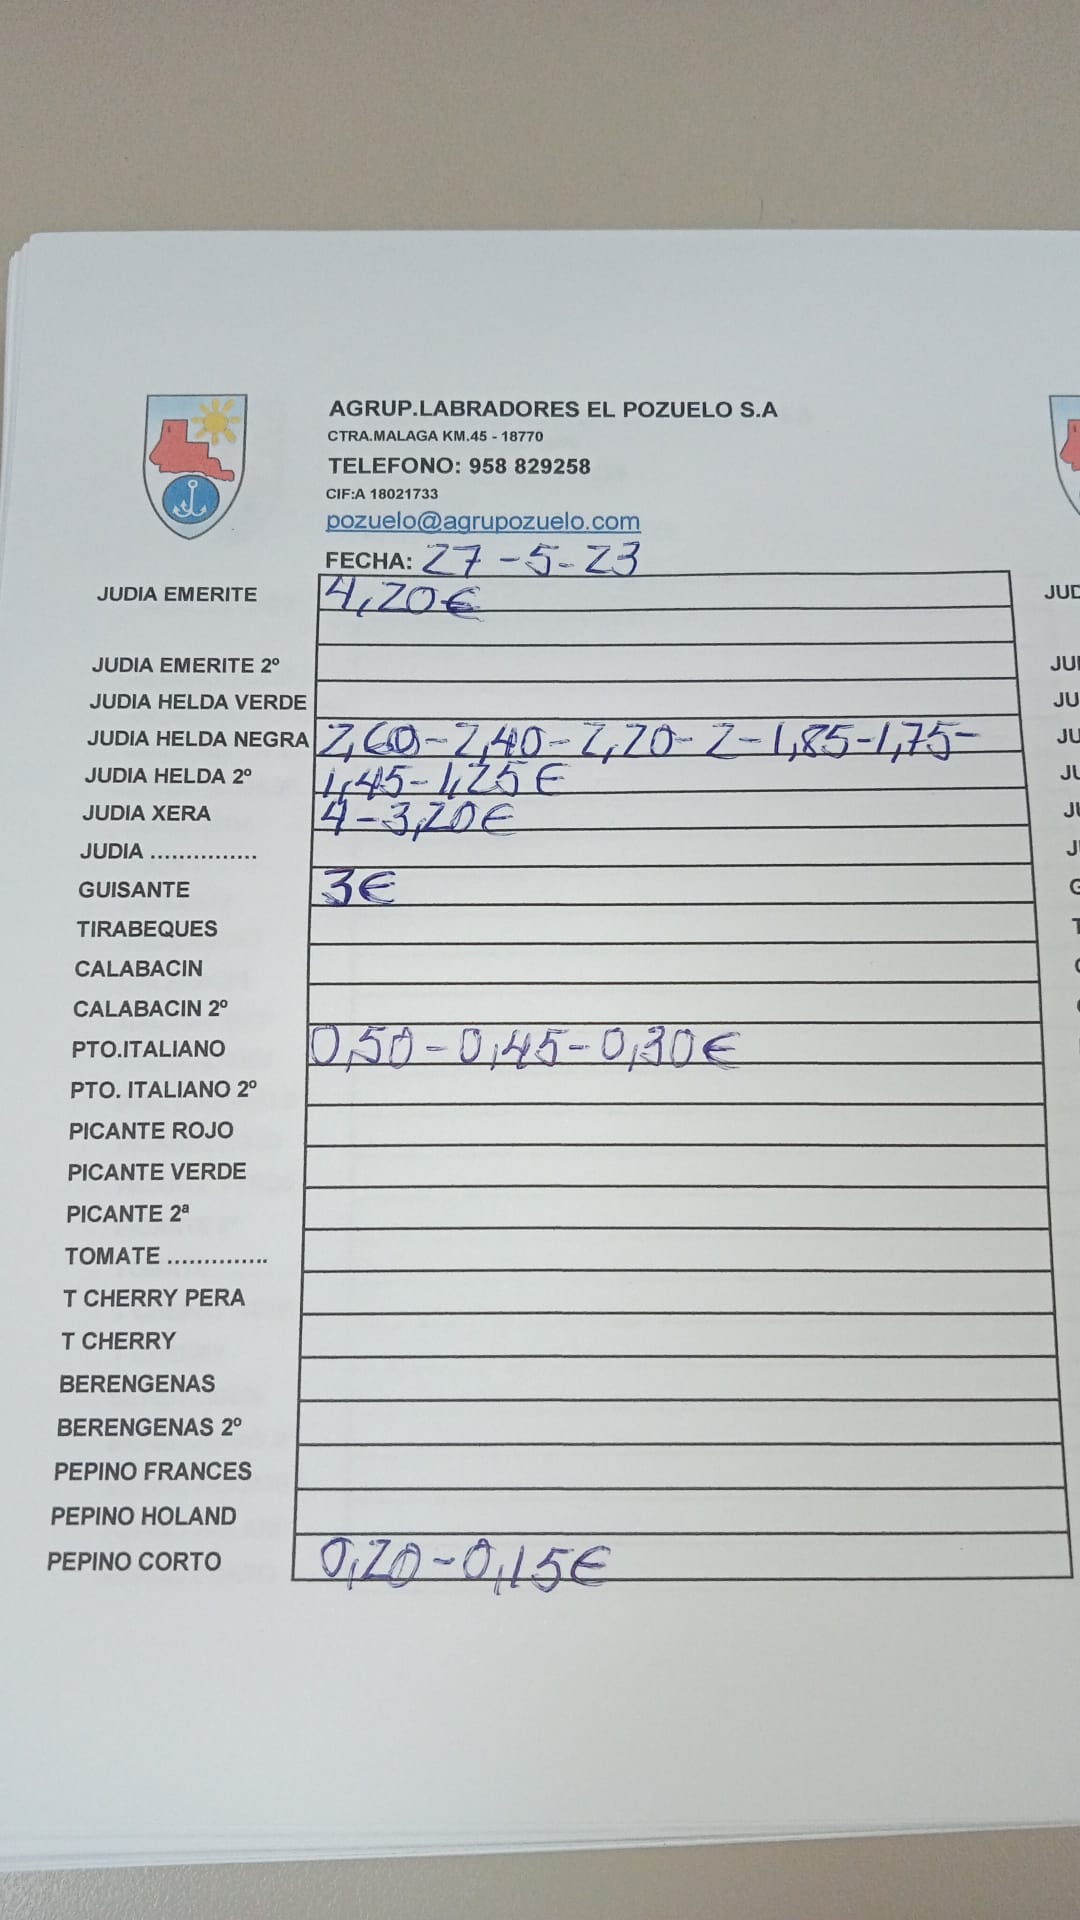 AGRUP.LABRADORES EL POZUELO S.A
CTRA.MALAGA KM.45 - 18770
TELEFONO: 958 829258
CIF:A 18021733
pozuelo@agrupozuelo.com
FECHA: 27-5-23
JUDIA EMERITE 4,20€
JUDIA EMERITE 2º
JUDIA HELDA VERDE
JUDIA HELDA NEGRA 2,60-2,40-2,20-2-1,85-1,75-
JUDIA HELDA 2º 1,45-1,25€
JUDIA XERA 4-3,20€
JUDIA ...............
GUISANTE 3€
TIRABEQUES
CALABACIN
CALABACIN 2º
PTO.ITALIANO 0,50-0,45-0,30€
PTO. ITALIANO 2º
PICANTE ROJO
PICANTE VERDE
PICANTE 2ª
TOMATE ..............
T CHERRY PERA
T CHERRY
BERENGENAS
BERENGENAS 2º
PEPINO FRANCES
PEPINO HOLAND
PEPINO CORTO 0,20-0,15€